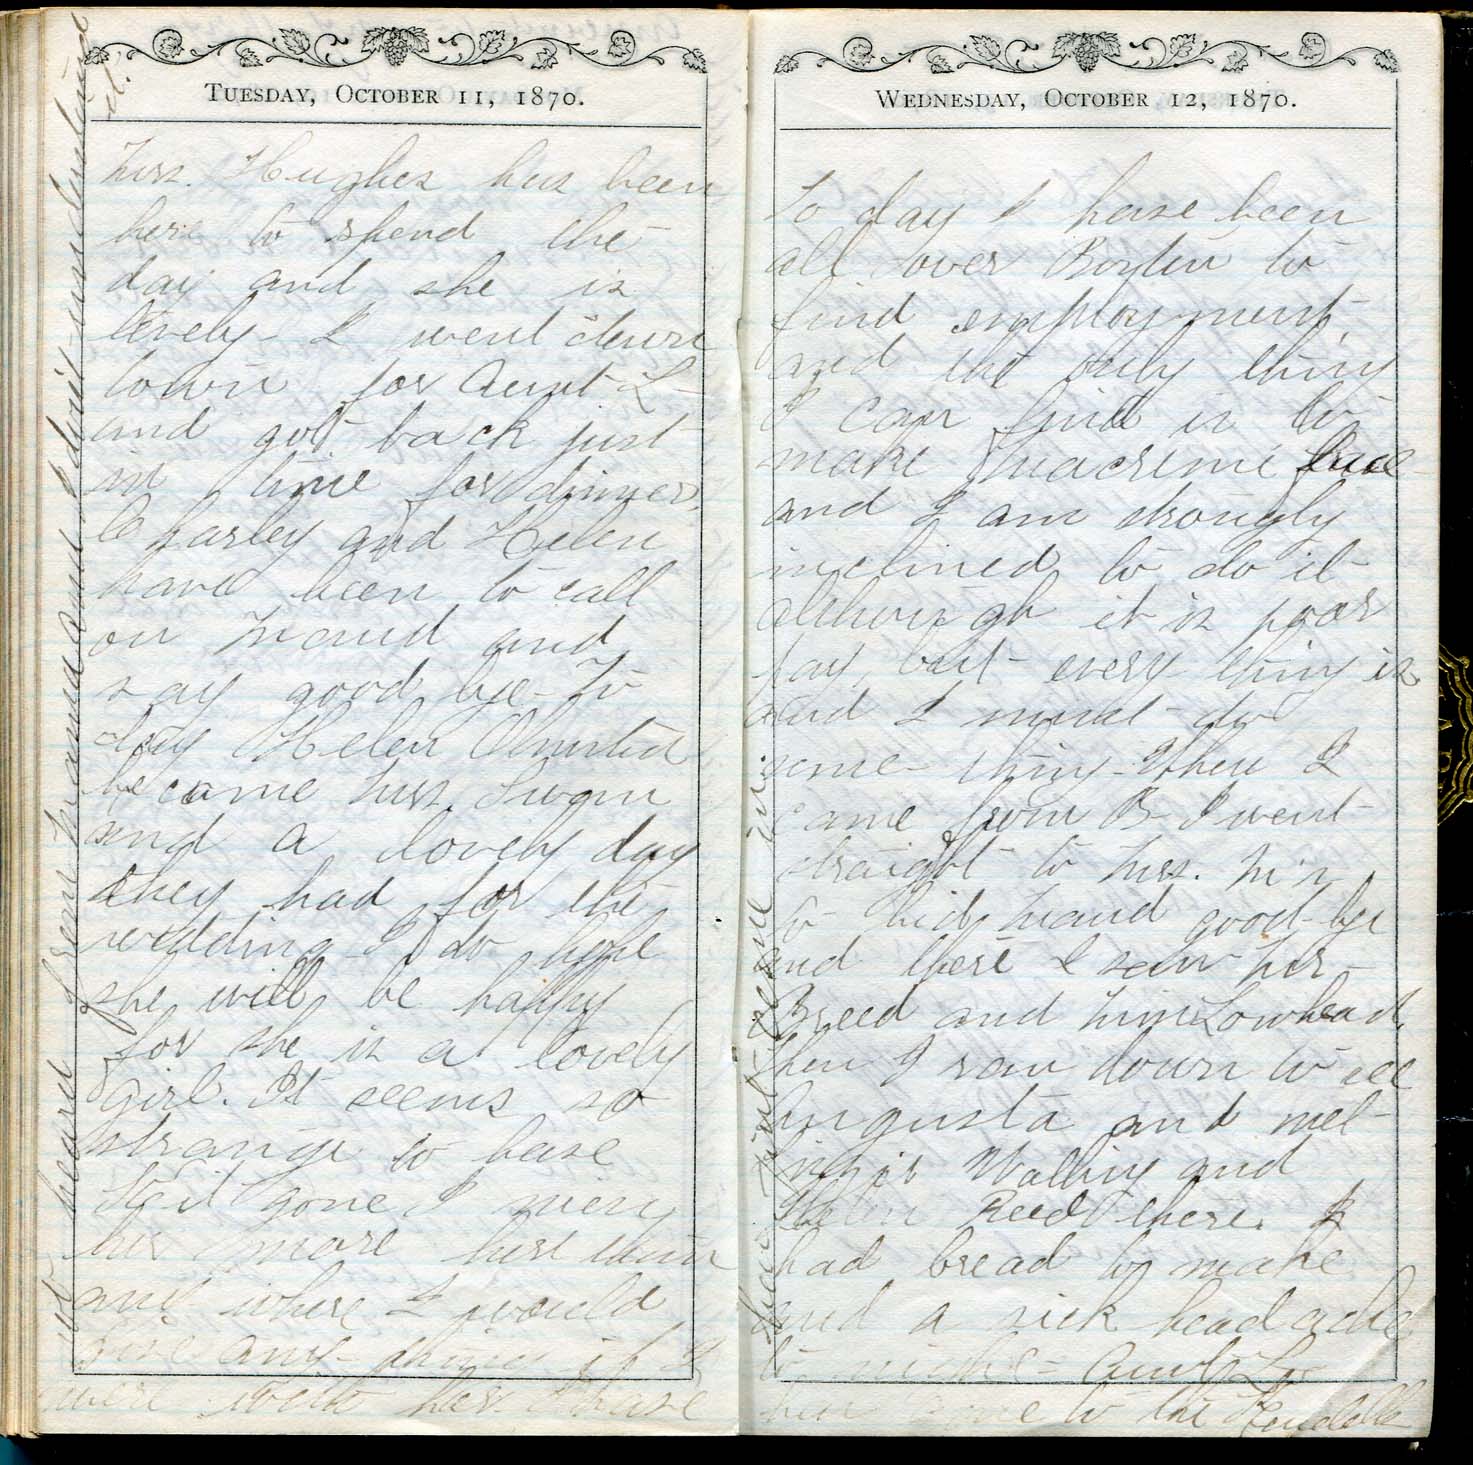 TUESDAY, OCTOBER 11, 1870.
Mrs. Hughes has been
here to spend the
day and she is
lovely- I went down
town for Aunt L-
and got back just
in time for dinner.
Charley and Helen
have been to call
on Maud and
say good bye- To
day Helen
became Mrs. Swan
and a lovely day
they had for the
wedding I do hope
she will be happy
for she is a lovely
girl. It seems so
strange to have
Kit gone I miss
her more here than
any where I would
give any thing if I
were with her I have
not heard from Mama and I don't understand
it.
WEDNESDAY, OCTOBER 12, 1870.
To day I have been
all over Boston to
find employment,
and the only thing
I can find is to
make macreme lace
and I am strongly
inclined to do it
although it is poor
pay, but every thing is
and I must do
some thing- When I
came from B- I went
straight to Mrs. M's
to bid Maud good-bye
and there I saw Mrs-
Breed and Miss Lowhead,
then I ran down to see
Augusta and met
and
Helen Reed there. I
had bread to make
and a sick head ache
to night- Aunt L-
has gone to the Kendalls
has just come in.